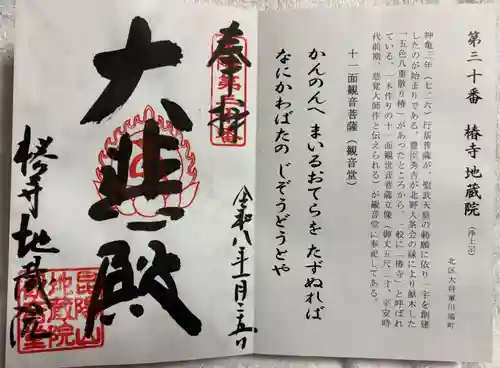 第三十番 椿寺 地蔵院 (浄土宗)
北区大将軍川端町
神亀三年(七二六)行基菩薩が、聖武天皇の勅願に依り一宇を創建
したのが始まりである。豊臣秀吉が北野大茶会の縁により献木した
「五色八重散り椿」があったところから、一般に「椿寺」と呼ばれ
ている。一木作りの十一面観世音菩薩立像(御丈五尺二寸、平安時
代前期、慈覚大師作と伝えられる)が観音堂に奉祀してある。
十一面観音菩薩(観音堂)
かんのんへ まいるおてらを たずぬれば
なにかわばたの じぞうどうとや
奉拝
大悲殿
椿寺地蔵院
昆陽山
地蔵院